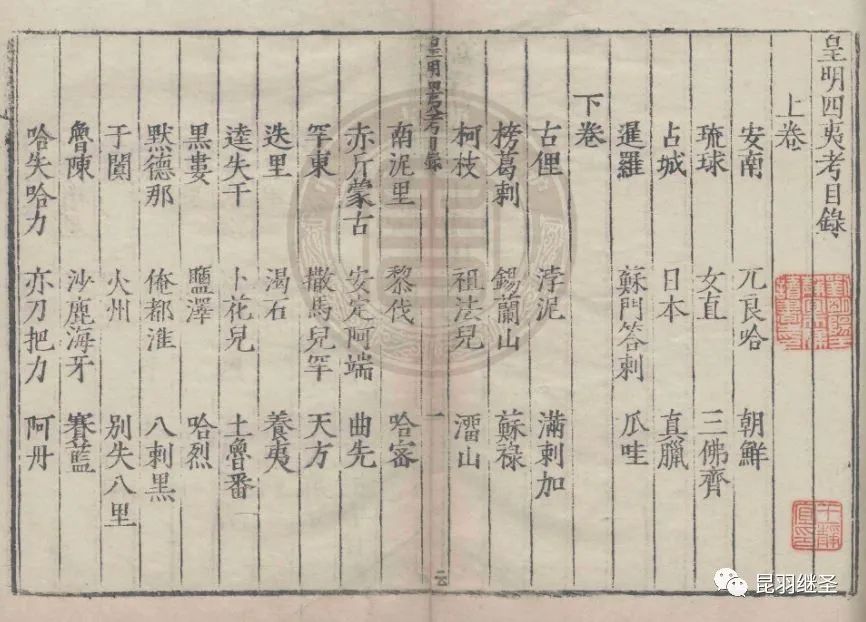 皇明四夷考目錄
上卷
安南 兀良哈 朝鮮
琉球 女直 三佛齊
占城 日本 真臘
暹羅 蘇門答剌 瓜哇
下卷
古俚 浡泥 滿剌加
榜葛剌 錫蘭山 蘇祿
柯枝 祖法兒 溜山
皇明四夷考目錄 一
南泥里 黎伐 哈密
赤斤蒙古 安定阿端 曲先
罕東 撒馬兒罕 天方
迭里 渴石 養夷
逵失干 卜花兒 土魯番
黑婁 鹽澤 哈烈
默德那 俺都淮 八剌黑
于闐 火州 別失八里
魯陳 沙鹿海牙 賽藍
哈失哈力 亦刀把力 阿丹
昆羽继圣